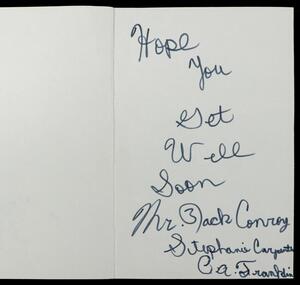 Hope
You
Get
Well
Soon
Mr. Jack Conroy
Stephanie Carpenter
C.A. Franklin